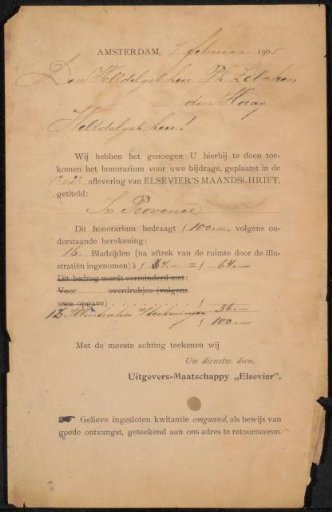 AMSTERDAM, 7 februari 190
Den WelEdelgeb. heer Ph. Zilcken
den Haag
WelEdelgeb. heer!
Wij hebben het genoegen U hierbij te doen toe-
komen het honorarium voor uwe bijdrage, geplaatst in de
aflevering van ELSEVIER'S MAANDSCHRIFT,
getiteld:
In Provence
Dit honorarium bedraagt ƒ 100.—, volgens on-
derstaande berekening:
16 Bladzijden (na aftrek van de ruimte door de illu-
stratiën ingenomen) à ƒ 4.— = ƒ 64.—
Dit bedrag werdt verminderd met:
Voor overdrukjes (volgens
uwe opgave) ƒ
12 Illustraties ƒ 36.—
ƒ 100.—
Met de meeste achting teekenen wij
Uw dienstw. dien.
Uitgevers-Maatschappy „Elsevier".
☛ Gelieve ingesloten kwitantie omgaand, als bewijs van
goede ontvangst, geteekend aan ons adres te retourneeren.